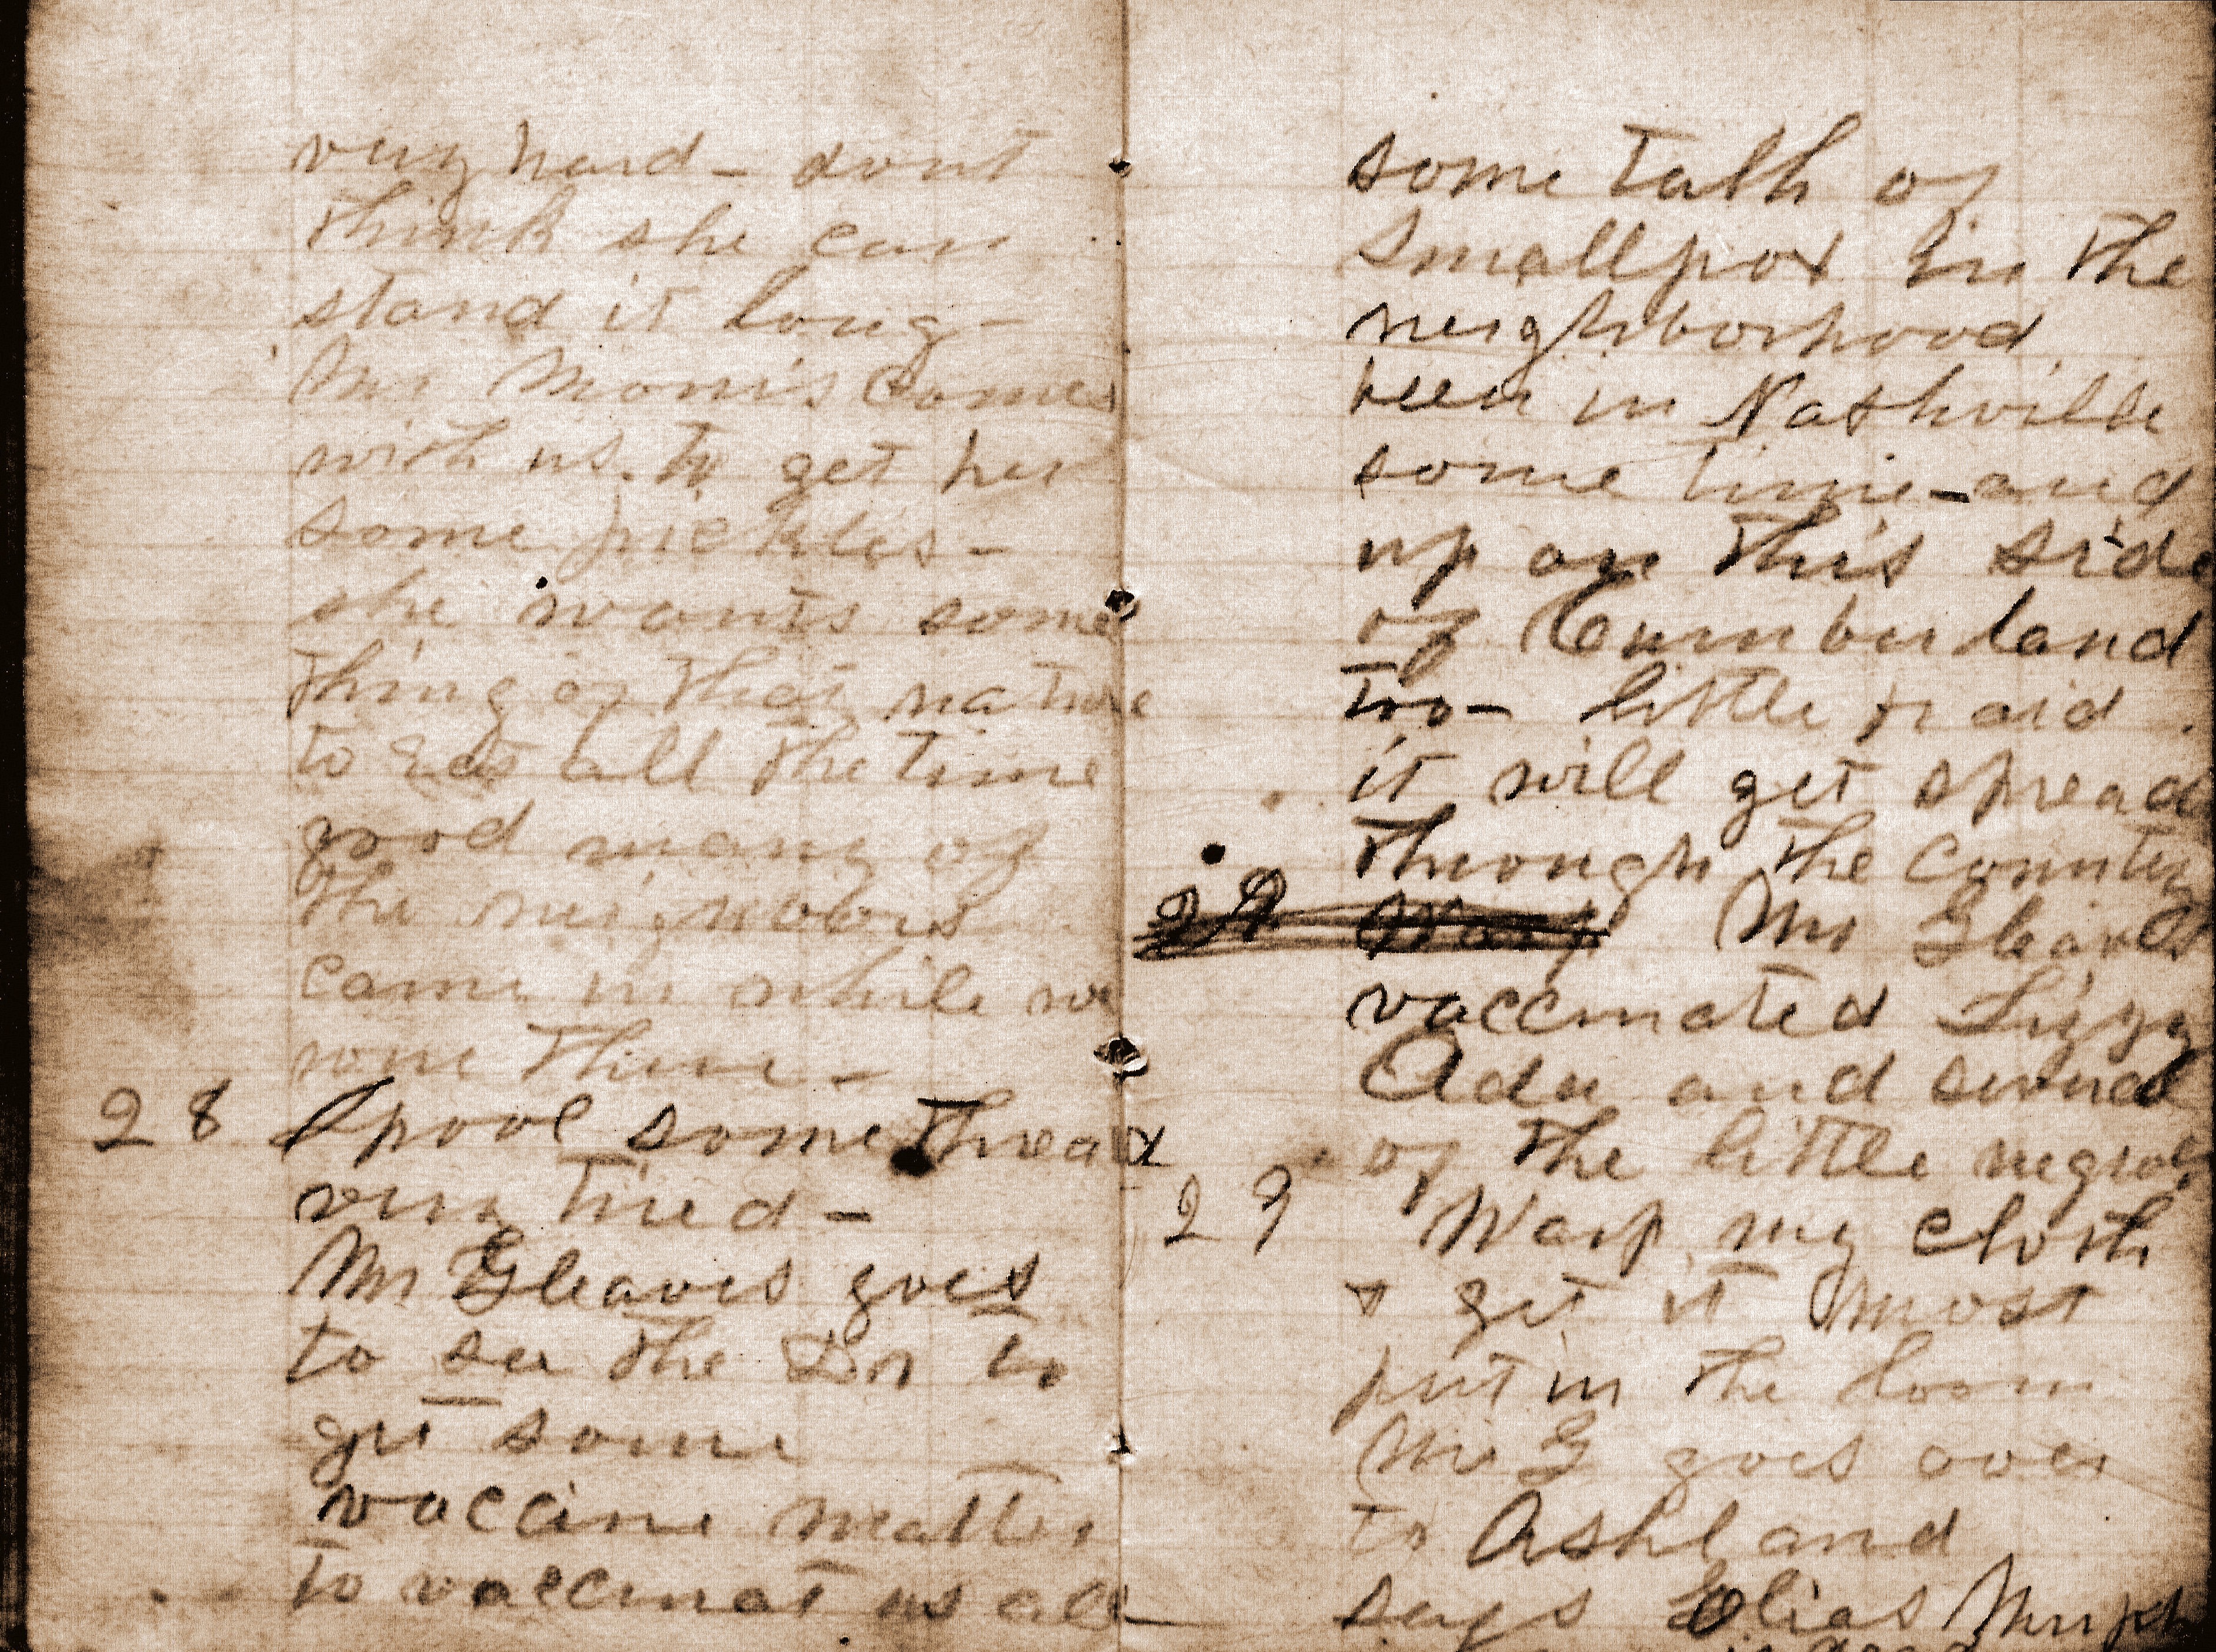 very hard - dont
think she can
stand it long -
Mr Morris comes
with us. to get her
some pickles -
she wants some
thing of that nature
to eat all the time
good many of
the neighbors
came in while we
were there -
28 Spool some thread
very tired -
Mr Gleaves goes
to see the Dr to
get some
vaccine matter
to vaccinat us all
some talk of
smallpox in the
neighborhood
been in Nashville
some time - and
up on this side
of Cumberland
too - little fraid
it will get spread
through the country
29 Warp Mr Gleaves
vaccinated Lizzy
Ada and several
of the little negroes
29 Warp my cloth
& get it most
put in the loom
Mr G goes over
to Ashland
says Elias Murph